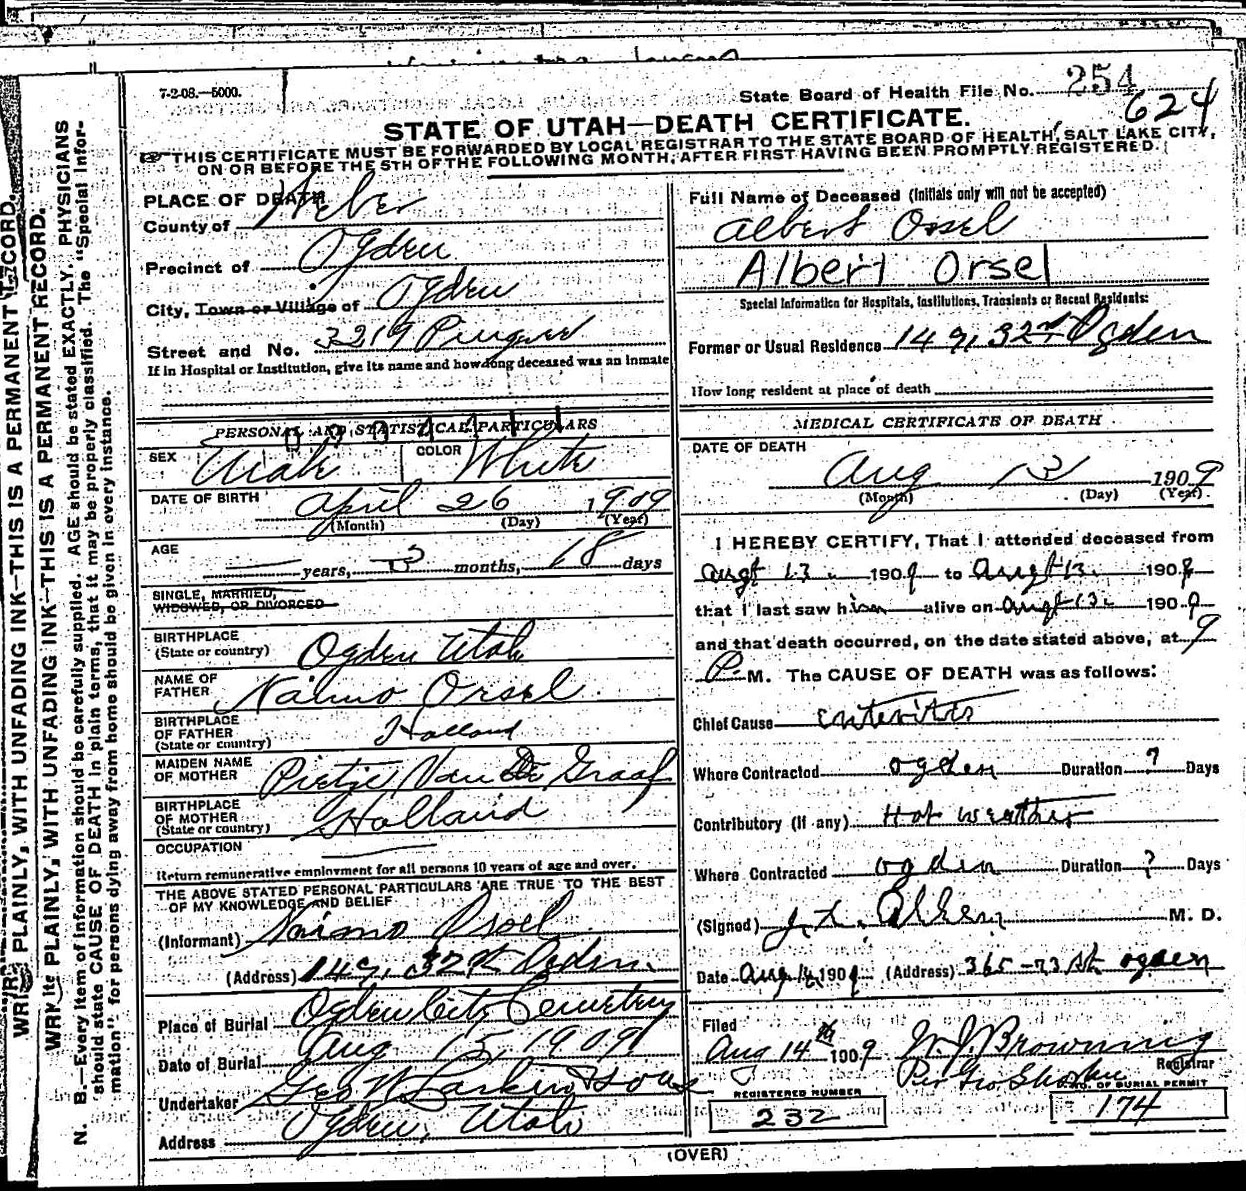 7-2-08.—5000.
State Board of Health File No. 254
624
STATE OF UTAH—DEATH CERTIFICATE.
THIS CERTIFICATE MUST BE FORWARDED BY LOCAL REGISTRAR TO THE STATE BOARD OF HEALTH, SALT LAKE CITY,
ON OR BEFORE THE 5TH OF THE FOLLOWING MONTH, AFTER FIRST HAVING BEEN PROMPTLY REGISTERED.
WRITE PLAINLY, WITH UNFADING INK—THIS IS A PERMANENT RECORD.
WRITE PLAINLY, WITH UNFADING INK—THIS IS A PERMANENT RECORD.
N. B.—Every item of information should be carefully supplied. AGE should be stated EXACTLY. PHYSICIANS
should state CAUSE OF DEATH in plain terms, that it may be properly classified. The "Special Infor-
mation" for persons dying away from home should be given in every instance.
PLACE OF DEATH
County of Weber
Precinct of Ogden
City, Town or Village of Ogden
Street and No. 3219
If in Hospital or Institution, give its name and how long deceased was an inmate
PERSONAL AND STATISTICAL PARTICULARS
SEX Male COLOR White
DATE OF BIRTH April 26 1909
(Month) (Day) (Year)
AGE — years, 3 months, 18 days
SINGLE, MARRIED,
WIDOWED, OR DIVORCED
BIRTHPLACE
(State or country) Ogden Utah
NAME OF
FATHER Naimo Orsel
BIRTHPLACE
OF FATHER
(State or country) Holland
MAIDEN NAME
OF MOTHER Pietje Van De Graaf
BIRTHPLACE
OF MOTHER
(State or country) Holland
OCCUPATION
Return remunerative employment for all persons 10 years of age and over.
THE ABOVE STATED PERSONAL PARTICULARS ARE TRUE TO THE BEST
OF MY KNOWLEDGE AND BELIEF
(Informant) Naimo Orsel
(Address) 149, 32nd Ogden
Place of Burial Ogden City Cemetery
Date of Burial Aug 15, 1909
Undertaker Geo W Larkin & Sons
Address Ogden, Utah
Full Name of Deceased (Initials only will not be accepted)
Albert Orsel
Albert Orsel
Special Information for Hospitals, Institutions, Transients or Recent Residents:
Former or Usual Residence 149, 32nd Ogden
How long resident at place of death
MEDICAL CERTIFICATE OF DEATH
DATE OF DEATH
Aug 13 1909
(Month) (Day) (Year)
I HEREBY CERTIFY, That I attended deceased from
Augt 13. 1909 to Augt 13. 1909
that I last saw him alive on Augt 13. 1909
and that death occurred, on the date stated above, at 9
P. M. The CAUSE OF DEATH was as follows:
Chief Cause enteritis
Where Contracted ogden Duration ? Days
Contributory (if any) Hot weather
Where Contracted ogden Duration ? Days
(Signed) M. D.
Date Aug 14, 1909 (Address) ogden
Filed
Aug 14th 1909 W. J. Browning
Registrar
Per Geo
REGISTERED NUMBER
232
NO. OF BURIAL PERMIT
174
(OVER)